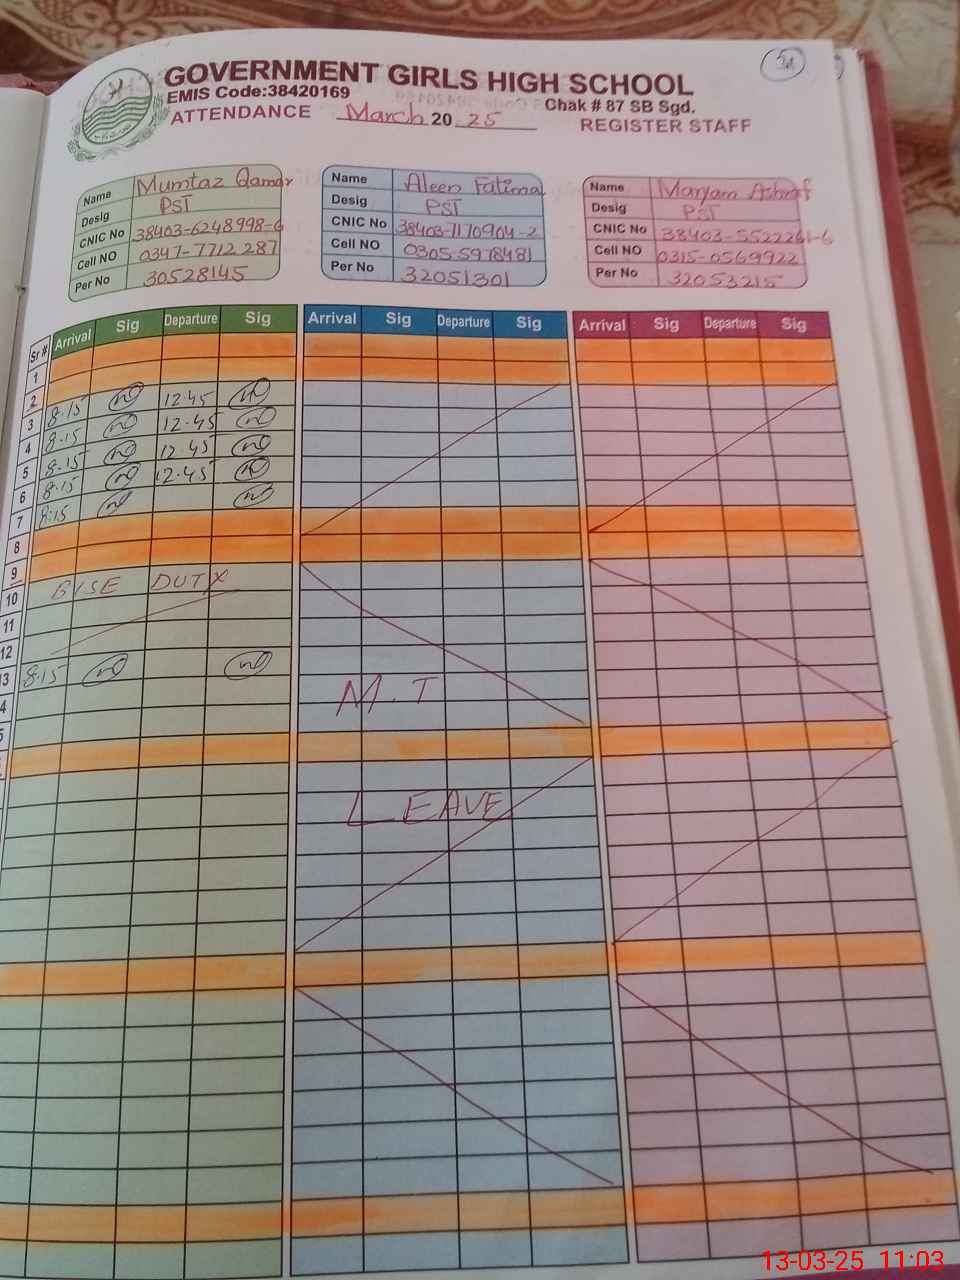 GOVERNMENT GIRLS HIGH SCHOOL
EMIS Code:38420169
Chak # 87 SB Sgd.
ATTENDANCE March 20 25 REGISTER STAFF
Name Mumtaz Qamar
Desig PST
CNIC No 38403-6248998-6
Cell NO 0347-7712287
Per No 30528145
Name Aleen Fatima
Desig PST
CNIC No 38403-1170904-2
Cell NO 0305-5978481
Per No 32051301
Name Maryam Ashraf
Desig PST
CNIC No 38403-5522261-6
Cell NO 0315-0569922
Per No 32053215
Sr # Arrival Sig Departure Sig Arrival Sig Departure Sig Arrival Sig Departure Sig
1
2
3 8.15 12.45
4 8.15 12.45
5 8.15 12.45
6 8.15 12.45
7 8.15
8
9
10 BISE DUTY
11
12
13 8.15
4 M.T
5
LEAVE
13-03-25 11:03